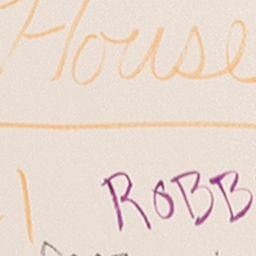 House
1 ROBB